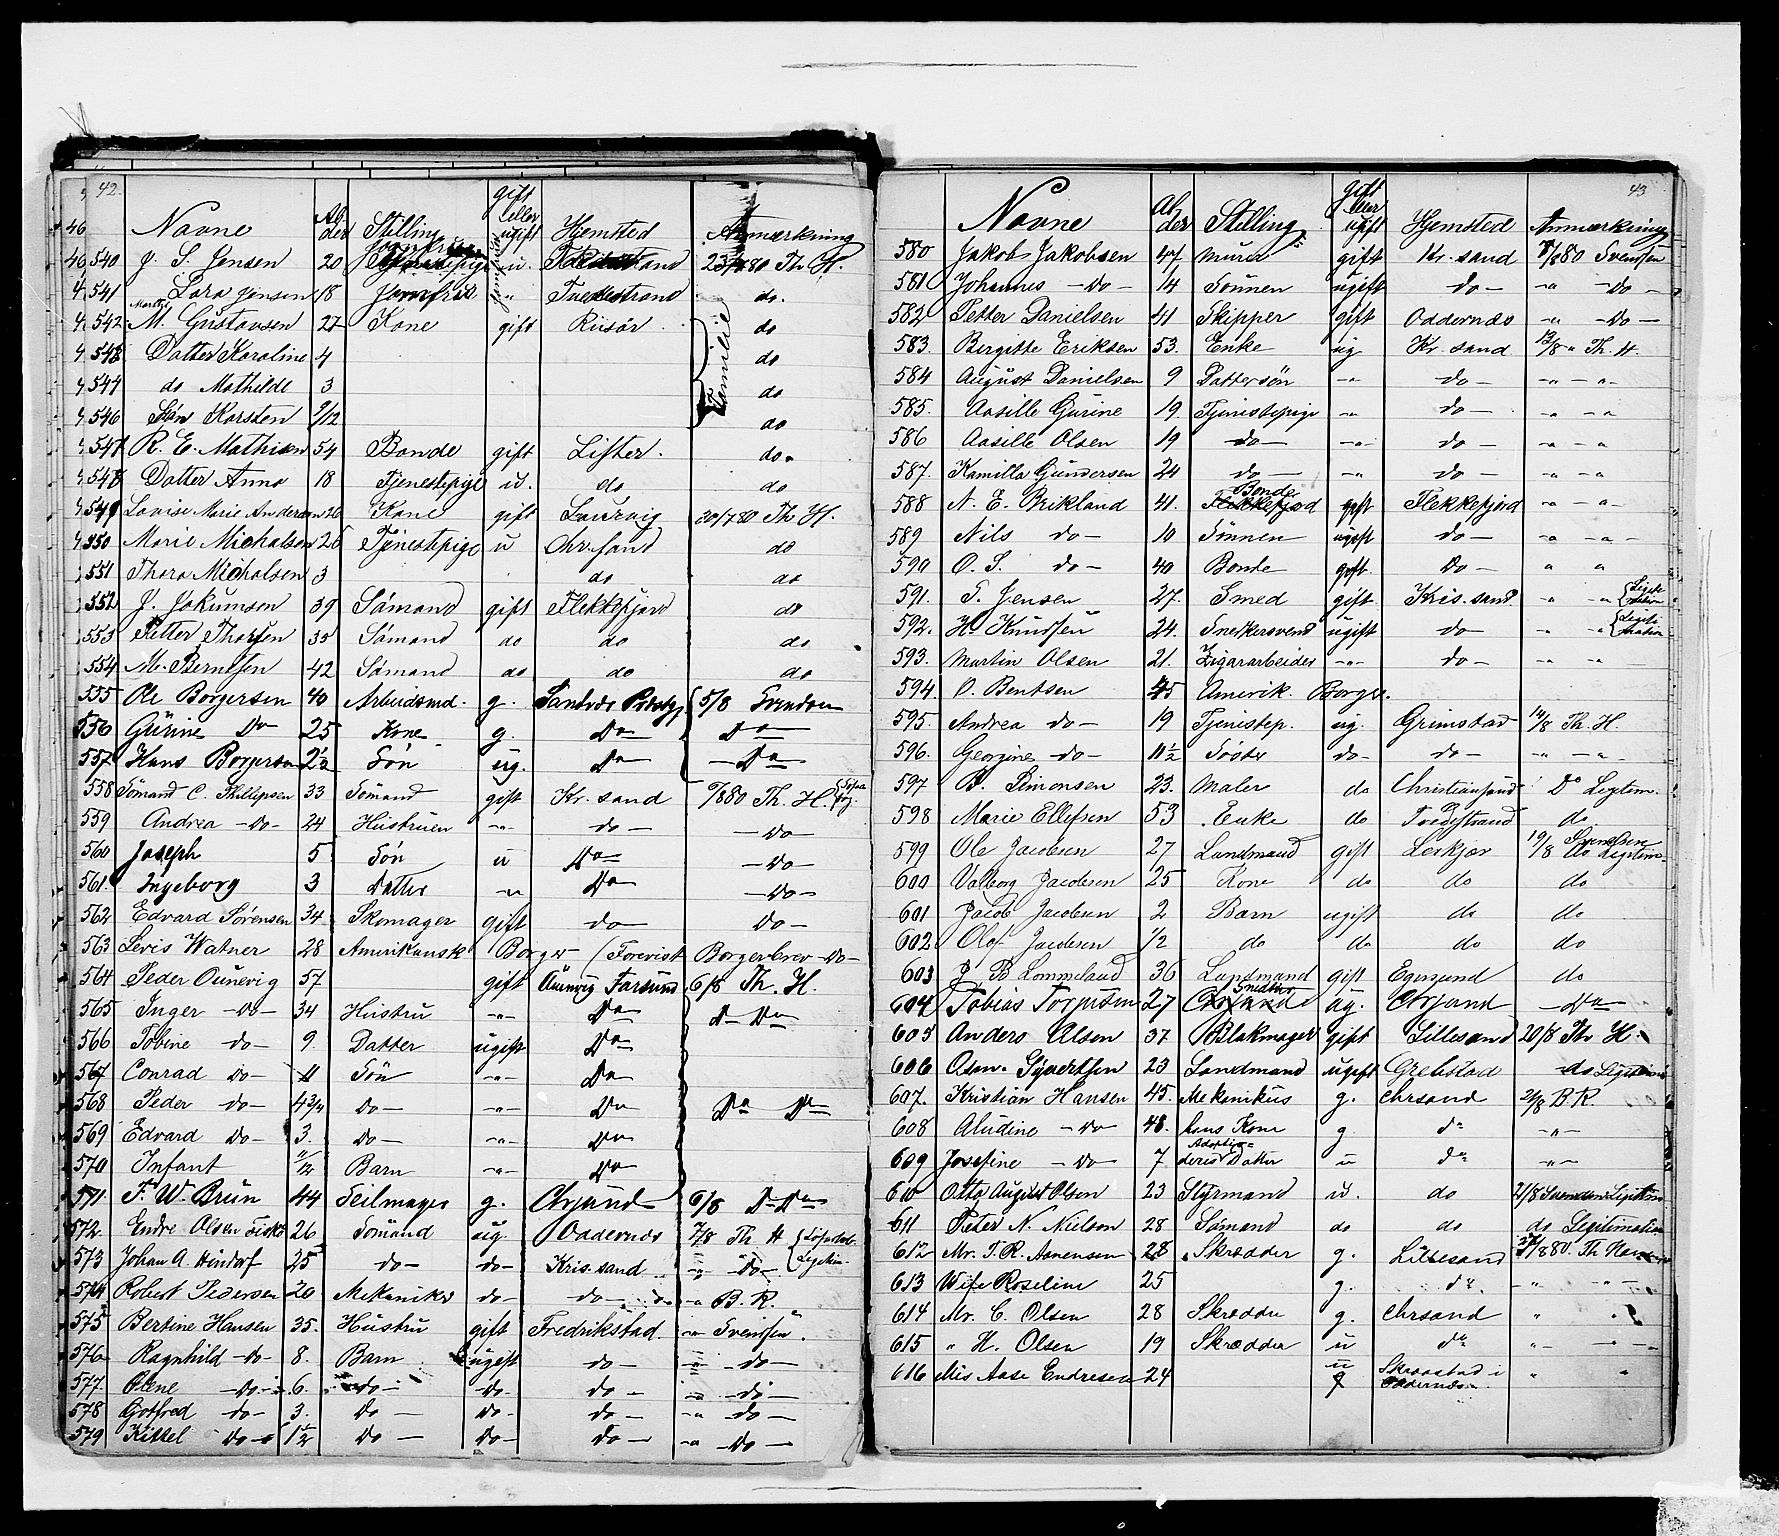 42.
46 Navne Alder Stilling gift eller ugift Hjemsted Anmærkning
540 J. S. Jensen 20 u. 23/7 80 Th. H.
541 Lara Jensen 18 Jomfrue " Tvedestrand do.
542 Marthe M. Gustavsen 27 Kone gift Riisör Familie do
543 Datter Karoline 4 do
544 do Mathilde 3 do
546 Sön Karsten 9/12 do
547 R. E. Mathisen 54 Bonde gift Lister. do.
548 Datter Anna 18 Tjenestepige u. do do
549 Lovise Marie Andersen 26 Kone gift Laurvig 30/7 80 Th H.
550 Marie Michalsen 26 Tjenestepige u Chr.sand do
551 Thora Michalsen 3 do do
552 J. Jokumsen 39 Sömand gift Flekkefjord do
553 Petter Thorsen 35 Sömand do do do
554 M. Berntsen 42 Sömand do do do
555 Ole Borgersen 40 Arbeidsmd. g. 5/8 Svendsen
556 Gürine Do 25 Kone g. Do Do
557 Hans Borgersen 2½ Sön ug. Do Do
558 Sömand C. Phillipsen 33 Sömand gift Kr. sand 6/880 Th. H.
559 Andrea do 24 Hüstruen " do do
560 Joseph 5 Sön u Do do
561. Ingeborg 3 Datter " Do do
562 Edvard Sörensen 34 Skomager gift do do
563 Levis Watner 28 Amerikansk Borger (Forevist Borgerbrev do
564 Peder Ounevig 57 gift Aunevig Farsund 6/8 Th. H.
565 Inger do 34 Hüstru " Do D Do
566 Tobine do 9 Datter ugift Do
567 Conrad do 11 Sön " Do
568 Peder do 4¾ do " Do Do Do
569 Edvard do 3. do " Do
570 Infant /12 Barn " Do
571. F. W. Brün 44 Seilmager g. Chrsand 6/8 D Do
572. Endre Olsen 26 Sömand ug. Oddernæs 7/8 Th H
573 Johan A. Hindorf 25 do do Kris.sand " do
574 Robert Pedersen 20 Mekaniker do do " B. R.
575 Bertine Hansen 35. Hüstru gift Fredrikstad. " Svendsen.
576 Ragnhild do 8. Barn ugift do " do
577. Olene do 6. do do do " do
578 Gotfred do 3. do do do " do
579 Kittel do 1½ do do do " do
43
Navne Alder Stilling gift eller ugift Hjemsted Anmærkning
580 Jakob Jakobsen 47 Murer gift Kr. sand /8 80 Svendsen
581 Johannes do 14 Sönnen ugift do " do
582 Petter Danielsen 41 Skipper gift Oddernæs " do
583. Birgitte Eriksen 53. Enke ug Kr. sand 13/8 " Th. H.
584 August Danielsen 9 Dattersön " do " "
585. Aasille Gürine 19 Tjenistepige " do " "
586 Aasille Olsen 19 do " do " "
587. Kamilla Gündersen 24 do " do " "
588 N. E. Brikland 41. Bonde gift Flekkefjord " "
589 Nils do 10 Sönnen ugift do " "
590 O. S. do 40 Bonde gift do " "
591. S. Jensen 27. Smed gift Kris.sand. " " Legitimation
592. H. Knudsen 24. Snekersvend ugift do " " Legitimation
593. Martin Olsen 21. Zigararbeider " do " "
594 O. Bentsen 45 Amerik. Borger.
595. Andrea do 19 Tjenistep. ug. Grimstad 14/8 Th. H.
596. Georgine do 11½ Söster do do " "
597 B. Simonsen 23. Maler do Christiansand Do Legtim.
598 Marie Ellefsen 53 Enke do Tvedestrand do
599 Ole Jacobsen 27 Landmand gift Lerkjær 19/8 Svendsen do Legitim
600 Valborg Jacobsen 25 Kone do do do
601 Jacob Jacobsen 2 Barn ugift do do
602 Olof Jacobsen ½ do do do do
603 J B Lommeland 36 Landmand gift Egersund do
604 Tobias Torjusen 27 Snedker ug. Chrsand Do
605 Anders Olsen 37 Blokmager gift Lillesand 20/8 Th H.
606 Osm. Syvertsen 23 Landmand ugift Grebstad do Legitim
607. Kristian Hansen 45. Mekanikus g. Chrsand 2/8 B R.
608 Aludine do 48. hans Kone g do "
609 Josefine do 7 Adoptiv= deres Datter u do "
610 Otto August Olsen 23 Styrmand u. do 21/8 Svendsen Legitim
611 Peter N. Nielsen 28 Sömand do do do Legitimation
612 Mr. T. R. Aanensen 28 Skrædder g. Lillesand /8 80. Th Hansen
613 Wife Roseline 25 g. do " "
614 Mr. C. Olsen 28 Skrædder g. Chrsand " "
615 " H. Olsen 19 Skrædder u do " "
616 Mis Aase Endresen 24 u g Oddernæs " "